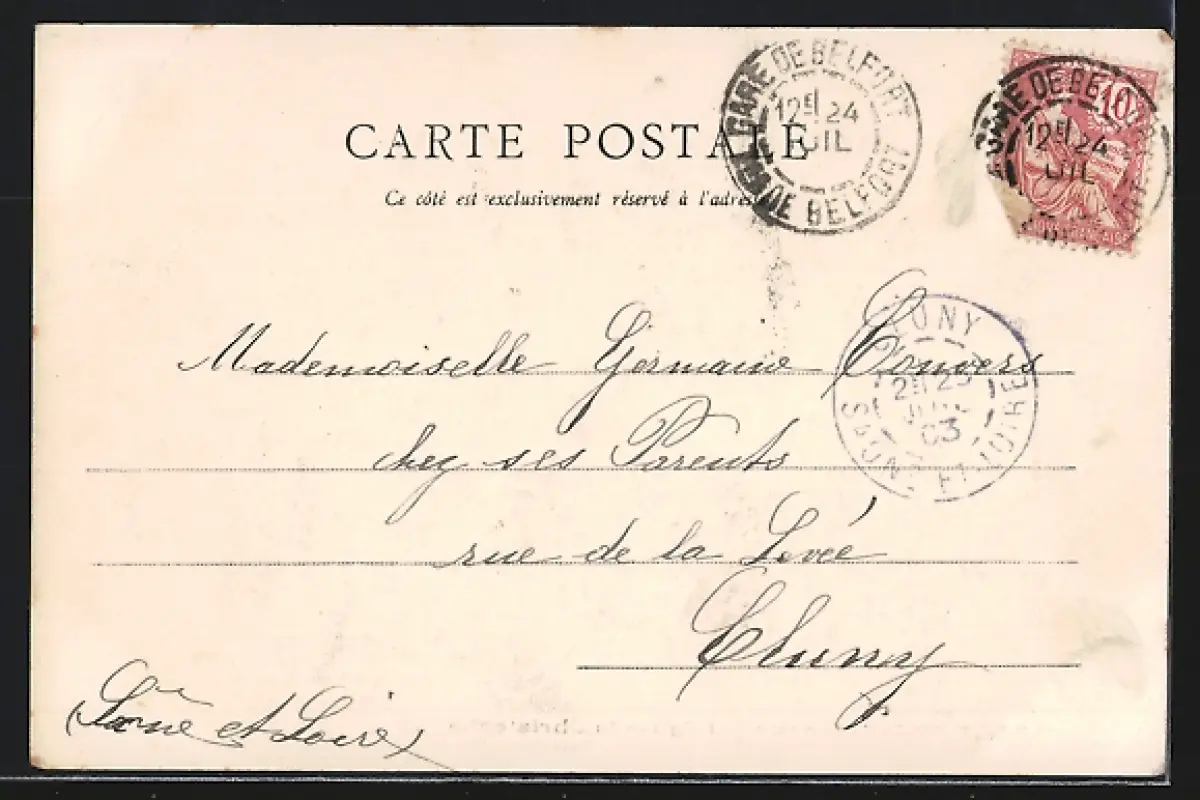 CARTE POSTALE
Ce côté est exclusivement réservé à l'adresse
GARE DE BELFORT
12E 24
JUIL
DE BELFORT
10
GARE DE BELFORT
12E 24
JUIL
CLUNY
2E 25
JUIL
03
SAONE-ET-LOIRE
Mademoiselle Germaine Convers
chez ses Parents
rue de la Levée
Cluny
(Saône et Loire)